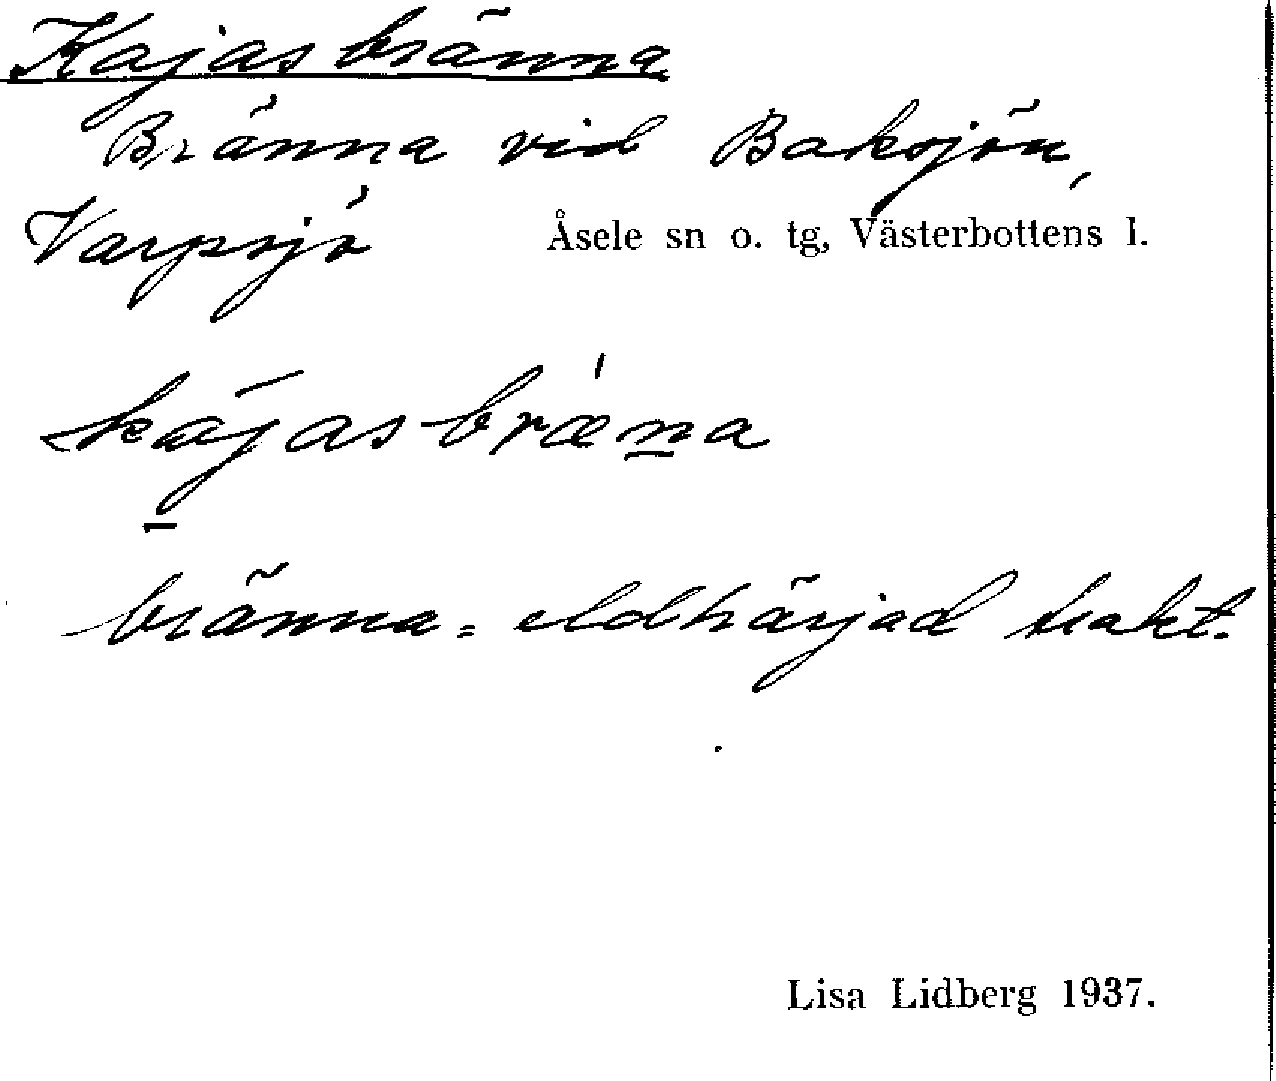 Kajasbränna
Bränna vid Baksjön,
Varpsjö Åsele sn o. tg, Västerbottens l.
kajasbræna
bränna = eldhärjad trakt.
Lisa Lidberg 1937.